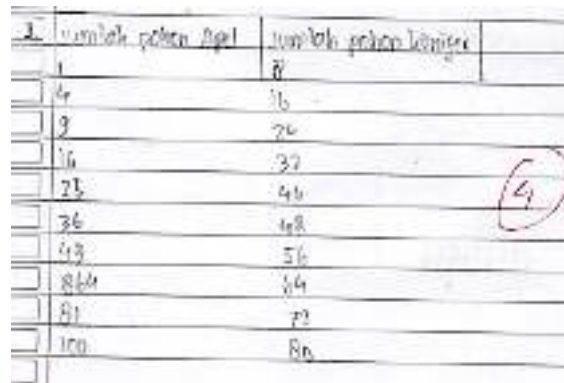 1 Jumlah pohon Apel Jumlah pohon konifer
1 8
4 16
9 24
16 32
25 40
36 48
49 56
864 64
81 72
100 80
4